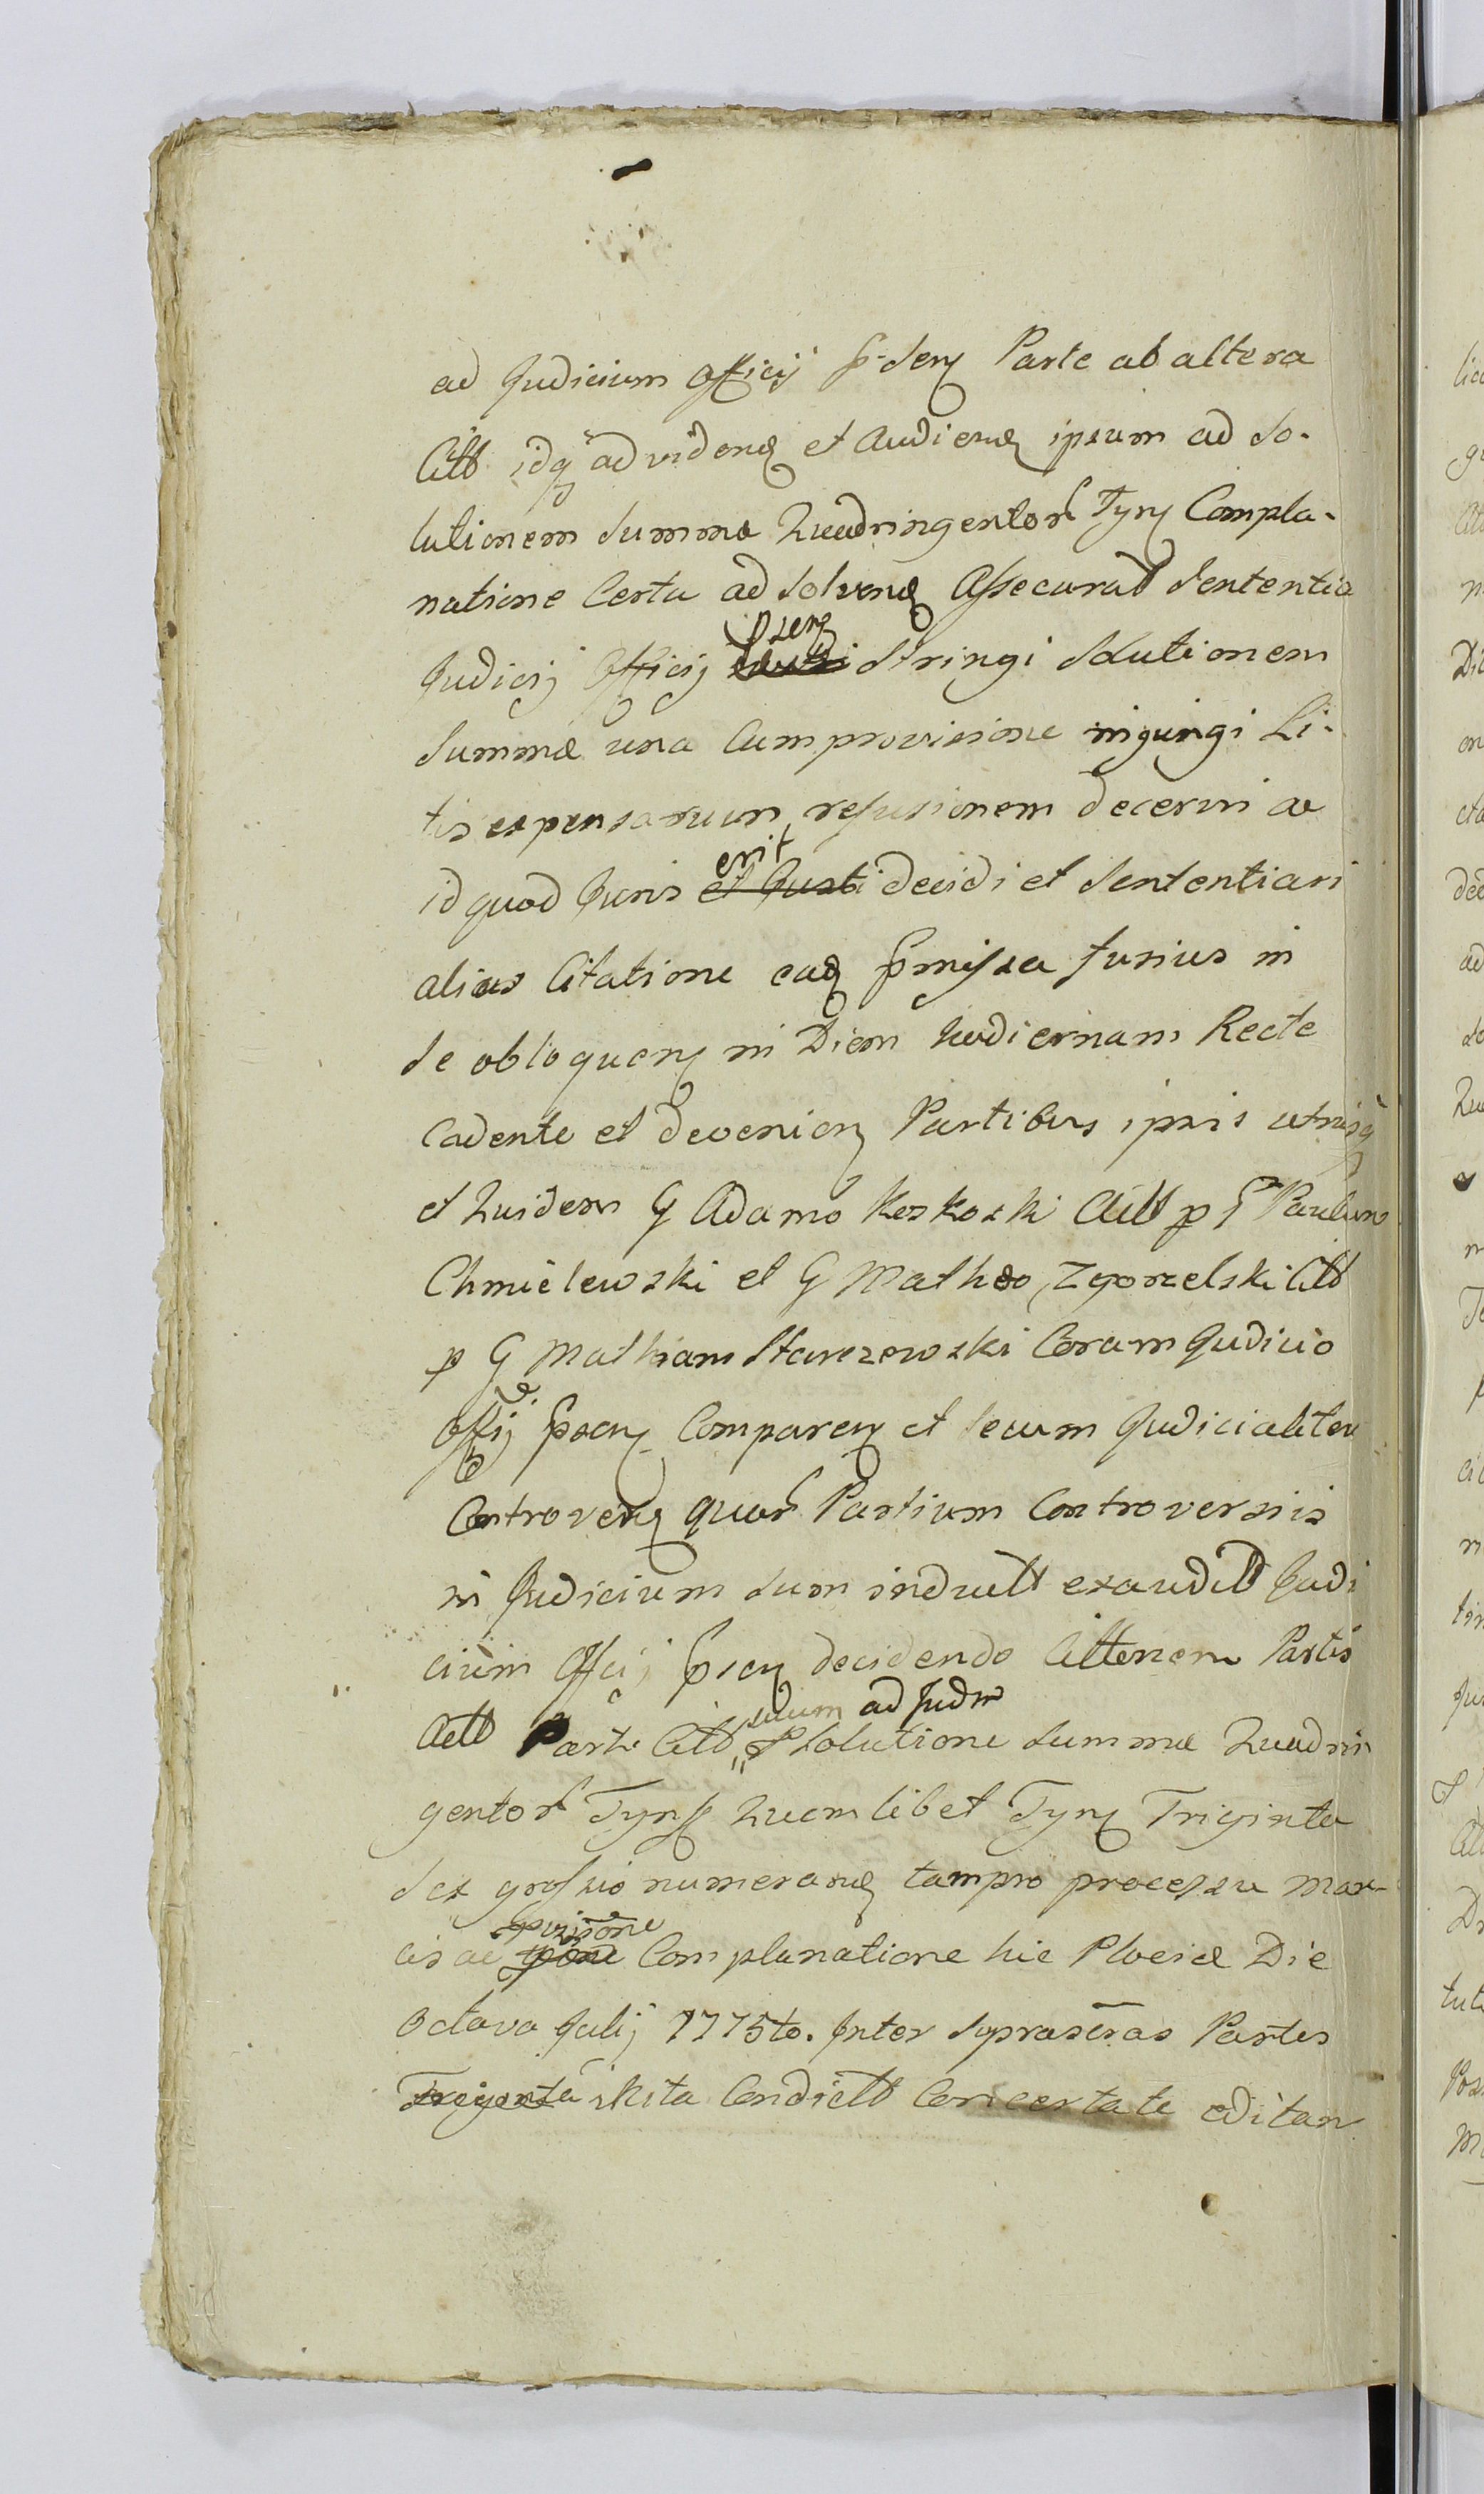 ad Judicium Officij Parte ab altera
Citt idq ad videnq et Audienq ipsum ad So-
lutionem Summa Quadringentor Tynf Compla-
natione Certa ad Solvenq Assecurat Sententia
Judicij Officij psenq Stringi Solutionem
Summæ una Cum provisione injungi Li-
tis expensarum, refusionem decerni ac
id quod Juris erit et Justi decidi et Sententiari
alias Citatione eaq pmissa fusius in
se obloquenq in Diem hodiernam Recte
Cadente et devenienq Partibus ipsis utrisq
et Quidem G Adamo Koskoski Actt p G Paulum
Chmielewski et G Matheo Zgorzelski Citt
p G Mathiam Starczewski Coram Judicio
Offij psenq Comparenq et secum Judicialiter
Controvenq quar Partium Controversiis
in Judicium Suum indutt exaudit Judi
cium Offcij psenq decidendo Parts
Actt Parte Citt suum ad Judm Solutione Summæ Quadrin
gentor Tynf Quemlibet Tynf Triginta
Sex grossio numeranq tam pro processu Mar-
cis ac pvisione Complanatione hic Plociæ Die
Octava Julij 1775to. Inter Suprascras Partes
Trigenta ita Condictt Concertate editan